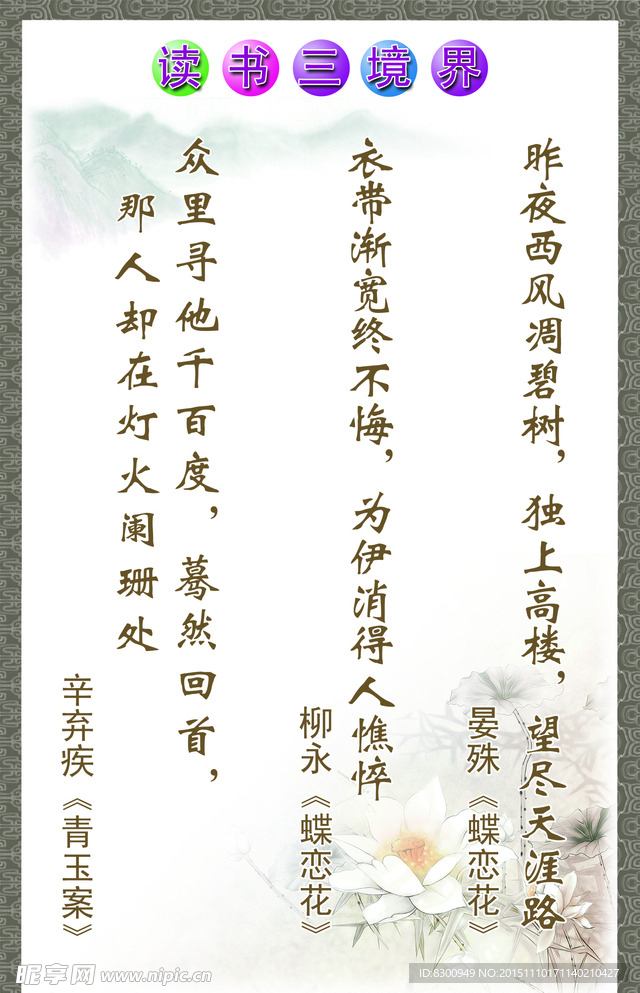 读书三境界
昨夜西风凋碧树，独上高楼，望尽天涯路
晏殊《蝶恋花》
衣带渐宽终不悔，为伊消得人憔悴
柳永《蝶恋花》
众里寻他千百度，蓦然回首，
那人却在灯火阑珊处
辛弃疾《青玉案》
昵享网 www.nipic.cn
ID:8300949 NO:20151110171140210427